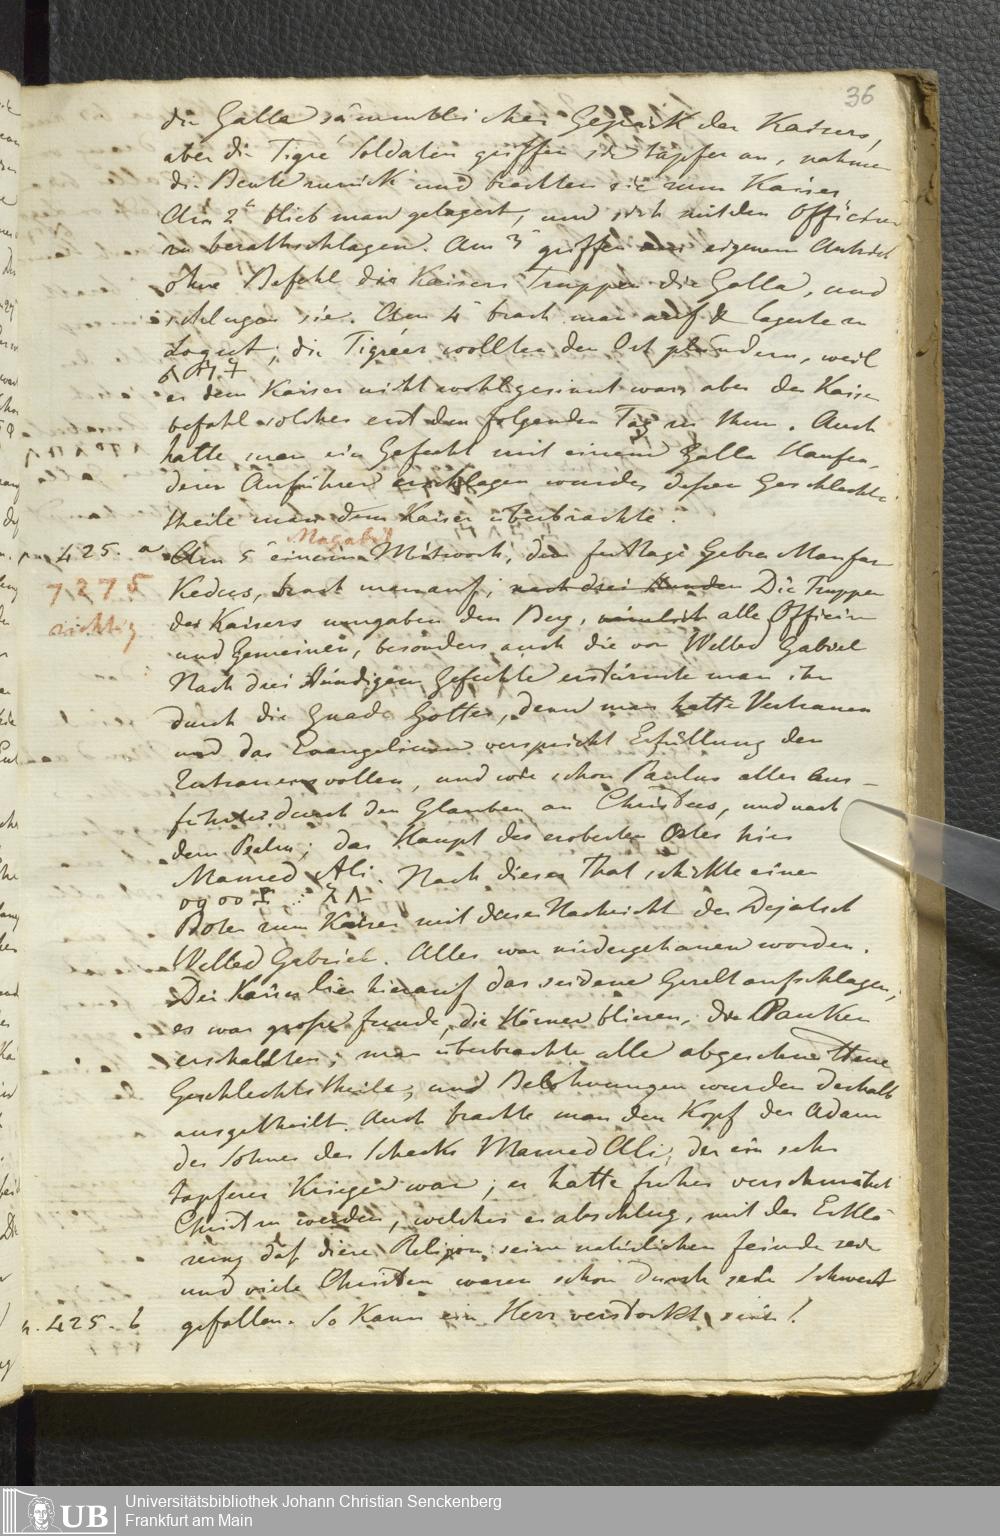 36
die Galla sämmtliches Gepäck des Kaisers,
aber die Tigré Soldaten griffen sie tapfer an, nahmen
die Beute zurück und brachten sie zum Kaiser
Am 2t blieb man gelagert, um sich mit den Officieren
zu berathschlagen. Am 3t griffen aus eigenem Antrieb
ohne Befehl des Kaisers Truppen die Galla, und
schlugen sie. Am 4t brach man auf & lagerte in
die Tigréer wollten den Ort plündern, weil
er dem Kaiser nicht wohlgesinnt war, aber der Kaiser
befahl solches erst den folgenden Tag zu thun. Auch
hatte man ein Gefecht mit einem Galla Haufen,
deren Anführer erschlagen wurde, dessen Geschlechts
theile man dem Kaiser überbrachte.
Magabit
p. 425. a Am 5t einem Mittwoch, dem festtage Gebra Manfas
7275 Kedus, brach man auf, nach drei Stunden Die Truppen
richtig des Kaisers umgaben den Berg, nämlich alle Officiere
und Gemeinen, besonders auch die von Welled Gabriel
Nach drei stündigem Gefechte erstürmte man ihn
durch die Gnade Gottes, denn man hatte Vertrauen
und das Evangelium verspricht Erfüllung den
Zutrauensvollen, und wie schon Paulus alles aus-
führte durch den Glauben an Christus, und nach
dem Psalm; das Haupt des eroberten Ortes hies
Mamed Ali. Nach dieser That schickte einen
Boten zum Kaiser mit dieser Nachricht der Dejatsch
Welled Gabriel. Alles war niedergehauen worden.
Der Kaiser lies hierauf das seidene Gezelt aufschlagen,
es war große freude, die Hörner bliesen, die Pauken
erschallten; man überbrachte alle abgeschnittene
Geschlechtstheile, und Belohnungen wurden deshalb
ausgetheilt. Auch brachte man den Kopf des Adam
des Sohnes des Scheks Mamed Ali, der ein sehr
tapferer Krieger war; er hatte früher verschmäht
Christ zu werden, welches er abschlug, mit der Erklä
rung daß diese Religion seine natürlichen feinde
und viele Christen waren schon durch sein Schwert
p. 425. b gefallen. So kann ein Herz verstockt sein!
UB
Universitätsbibliothek Johann Christian Senckenberg
Frankfurt am Main